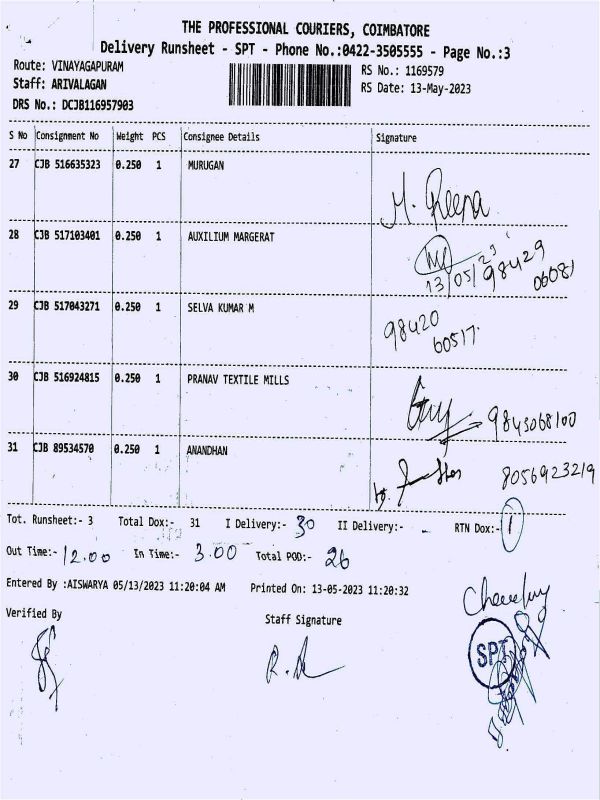 THE PROFESSIONAL COURIERS, COIMBATORE
Delivery Runsheet - SPT - Phone No.:0422-3505555 - Page No.:3
Route: VINAYAGAPURAM
Staff: ARIVALAGAN
DRS No.: DCJB116957903
RS No.: 1169579
RS Date: 13-May-2023
S No Consignment No Weight PCS Consignee Details Signature
27 CJB 516635323 0.250 1 MURUGAN
M. Reepa
28 CJB 517103401 0.250 1 AUXILIUM MARGERAT
13/05/23 98429
06081
29 CJB 517043271 0.250 1 SELVA KUMAR M
98420
60517.
30 CJB 516924815 0.250 1 PRANAV TEXTILE MILLS
9843068100
31 CJB 89534570 0.250 1 ANANDHAN
8056923219
Tot. Runsheet:- 3 Total Dox:- 31 I Delivery:- 30 II Delivery:- - RTN Dox:- 1
Out Time:- 12.00 In Time:- 3.00 Total POD:- 26
Entered By :AISWARYA 05/13/2023 11:20:04 AM Printed On: 13-05-2023 11:20:32
Verified By
Staff Signature
SPT